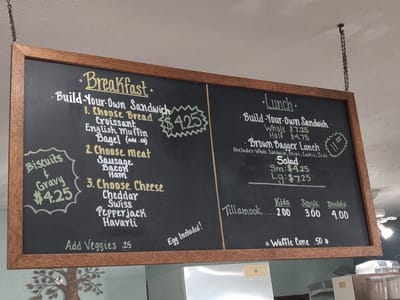 Breakfast
Build-Your-Own Sandwich
$4.25
1. Choose Bread
Croissant
English Muffin
Bagel (add .50)
2. Choose meat
Sausage
Bacon
Ham
3. Choose Cheese
Cheddar
Swiss
Pepperjack
Havarti
Egg Included!
Add Veggies .25
Biscuits &
Gravy
$4.25
Lunch
Build-Your-Own Sandwich
Whole $7.25
Half $4.75
Brown Bagger Lunch
Includes: Whole Sandwich, Chips, Cookie, Soda
Salad
Sm: $4.25
Lg: $7.25
Kids Single Double
Tillamook 2.00 3.00 4.00
Waffle Cone .50